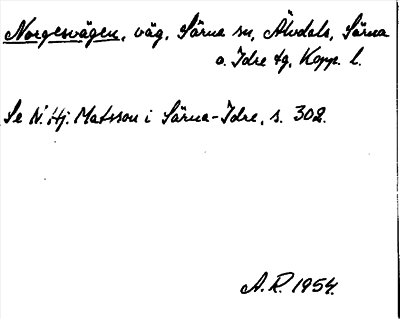 Norgesvägen, väg, Särna sn, Älvdals, Särna
o. Idre tg, Kopp. l.
Se N. Hj. Matsson i Särna-Idre, s. 302.
A. R. 1954.